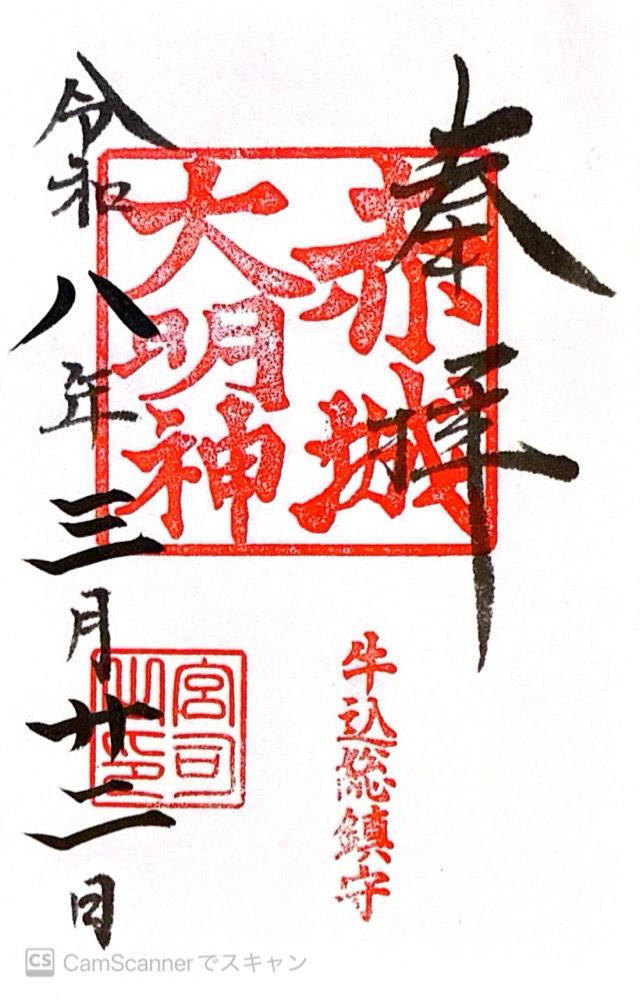 奉拝
赤城
大明神
牛込総鎮守
宮司
之印
令和八年三月廿二日
CS CamScannerでスキャン